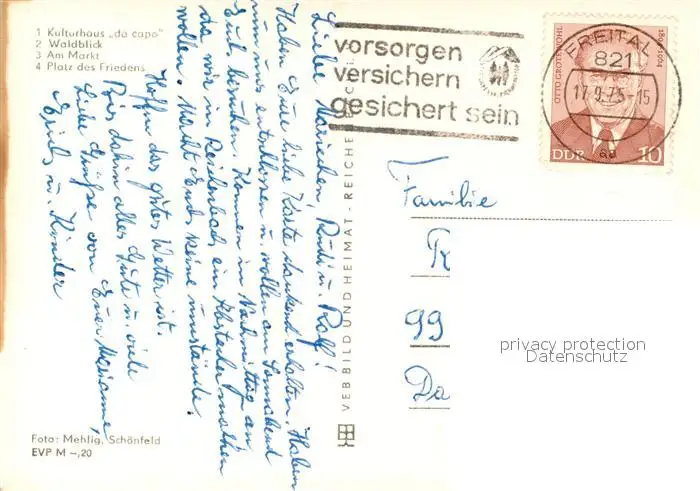 1 Kulturhaus „da capo"
2 Waldblick
3 Am Markt
4 Platz des Friedens
Liebe Mariechen, Rudi u. Rolf!
Haben Eure liebe Karte dankend erhalten. Haben
nun uns entschlossen u. wollen am Sonnabend
Euch besuchen. Kommen im Nachmittag an
da, wir in Reichenbach ein Abstecher machen
wollen. Macht Euch keine umstände.
Hoffen das gutes Wetter ist.
Bis dahin alles Gute u. viele
liebe Grüße von Euer Marianne,
Erich u. Kinder
Foto: Mehlig, Schönfeld
EVP M –,20
VEB BILD UND HEIMAT · REICHE
vorsorgen
versichern
gesichert sein
FREITAL
821
17.9.75-15
ad
OTTO GROTEWOHL
1894-1964
DDR 10
Familie
99
privacy protection
Datenschutz